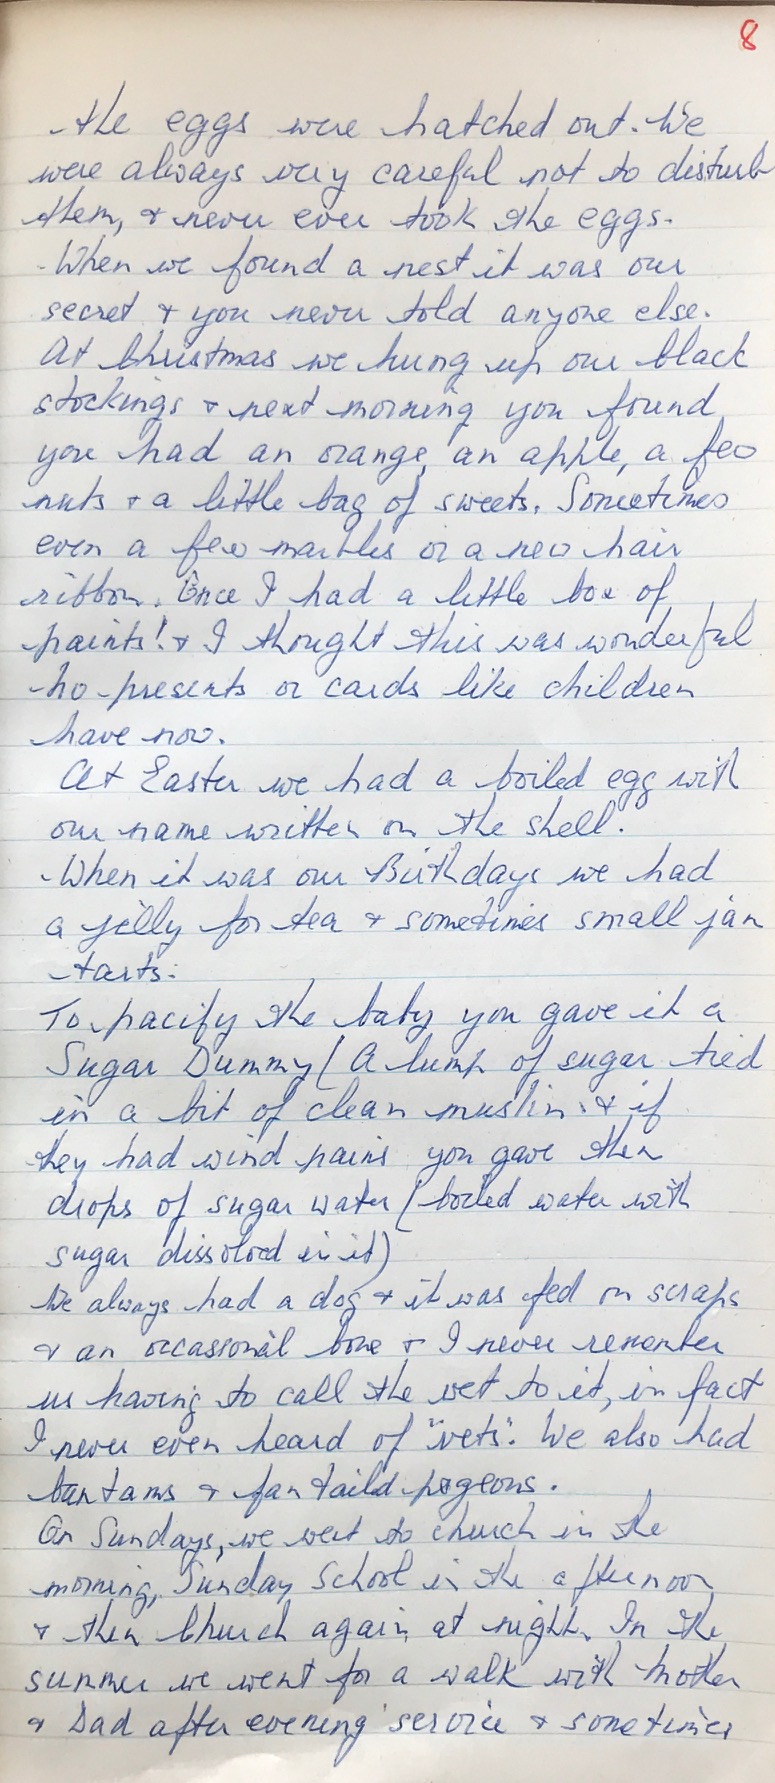 8
the eggs were hatched out. We
were always very careful not to disturb
them, & never ever took the eggs.
When we found a nest it was our
secret & you never told anyone else.
At Christmas we hung up our black
stockings & next morning you found
you had an orange, an apple, a few
nuts & a little bag of sweets. Sometimes
even a few marbles or a new hair
ribbon. Once I had a little box of
paints! & I thought this was wonderful
no presents or cards like children
have now.
At Easter we had a boiled egg with
our name written on the shell.
When it was our Birthdays we had
a jelly for tea & sometimes small jam
tarts.
To pacify the baby you gave it a
Sugar Dummy (A lump of sugar tied
in a bit of clean muslin. & if
they had wind pains you gave them
drops of sugar water (boiled water with
sugar dissolved in it)
We always had a dog & it was fed on scraps
& an occassional bone & I never remember
us having to call the vet to it, in fact
I never even heard of "vets". We also had
bantams & fantaild pigeons.
On Sundays, we went to church in the
morning, Sunday School in the afternoon
& then Church again at night. In the
summer we went for a walk with Mother
& Dad after evening service & sometimes